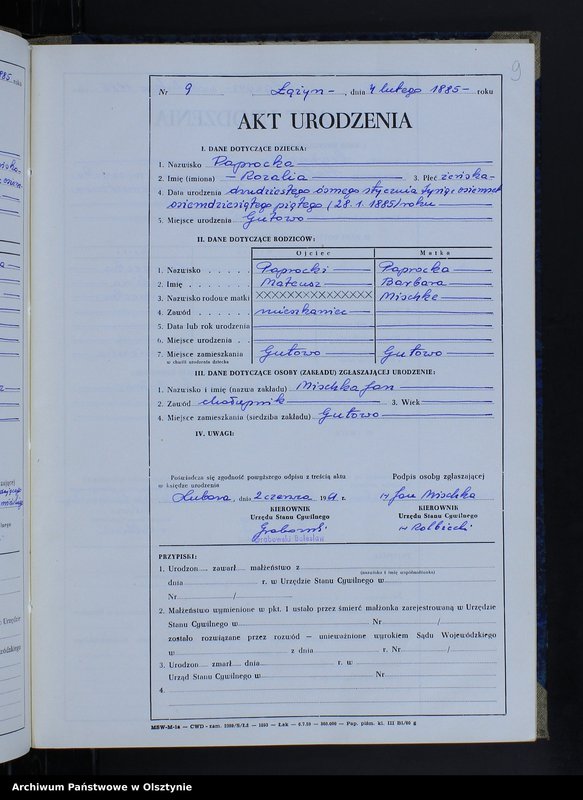 9
Nr 9 Łążyn - , dnia 4 lutego 1885 - roku
AKT URODZENIA
I. DANE DOTYCZĄCE DZIECKA:
1. Nazwisko Paprocka
2. Imię (imiona) - Rozalia 3. Płeć żeńska -
4. Data urodzenia dwudziestego ósmego stycznia tysiąc osiemset
osiemdziesiątego piątego (28.1.1885) roku
5. Miejsce urodzenia Gutowo
II. DANE DOTYCZĄCE RODZICÓW:
Ojciec Matka
1. Nazwisko Paprocki Paprocka
2. Imię Mateusz Barbara
3. Nazwisko rodowe matki XXXXXXXXXXXXX Mischke
4. Zawód mieszkaniec
5. Data lub rok urodzenia
6. Miejsce urodzenia
7. Miejsce zamieszkania Gutowo Gutowo
w chwili urodzenia dziecka
III. DANE DOTYCZĄCE OSOBY (ZAKŁADU) ZGŁASZAJĄCEJ URODZENIE:
1. Nazwisko i imię (nazwa zakładu) Mischka Jan
2. Zawód chałupnik 3. Wiek
4. Miejsce zamieszkania (siedziba zakładu) Gutowo
IV. UWAGI:
Poświadcza się zgodność powyższego odpisu z treścią aktu
w księdze urodzenia
Podpis osoby zgłaszającej
dnia 2 czerwca 1961 r.
Jan Mischka
KIEROWNIK
Urzędu Stanu Cywilnego
KIEROWNIK
Urzędu Stanu Cywilnego
Grabowski
Grabowski Bolesław
Rolbiecki
PRZYPISKI:
1. Urodzon zawarł małżeństwo z
(nazwisko i imię współmałżonka)
dnia r. w Urzędzie Stanu Cywilnego w
Nr /
2. Małżeństwo wymienione w pkt. 1 ustało przez śmierć małżonka zarejestrowaną w Urzędzie
Stanu Cywilnego w Nr /
zostało rozwiązane przez rozwód — unieważnione wyrokiem Sądu Wojewódzkiego
w z dnia r. Nr /
3. Urodzon zmarł dnia r. w
Urząd Stanu Cywilnego w Nr
4.
MSW-M-14 — CWD - zam.
Archiwum Państwowe w Olsztynie